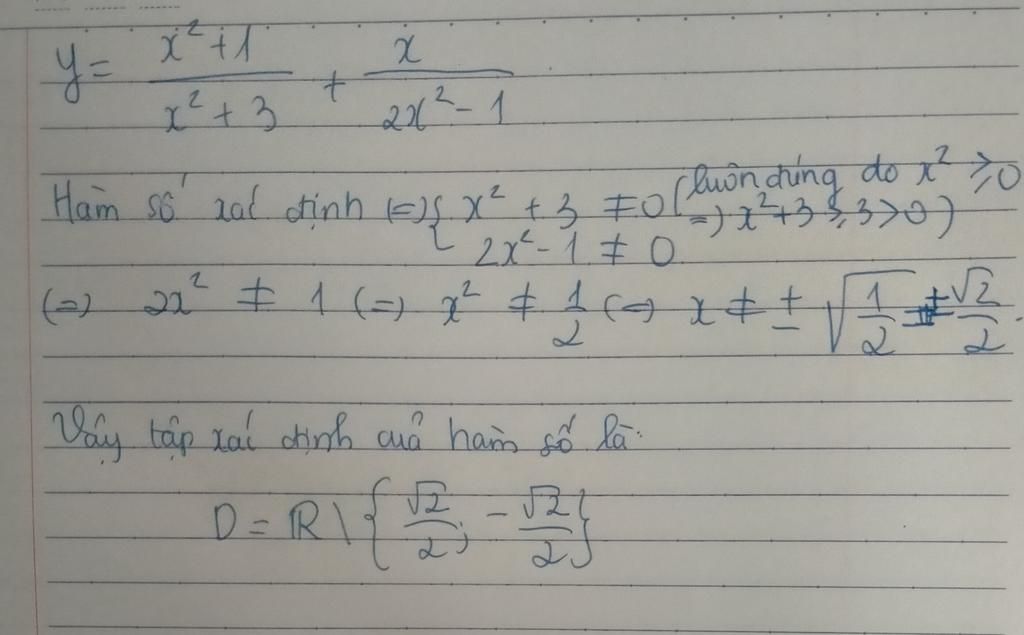 y = \frac{x^2+1}{x^2+3} + \frac{x}{2x^2-1}
Hàm số xác định (=) { x^2 + 3 ≠ 0 (luôn đúng do x^2 ≥ 0 =) x^2+3 ≥ 3 > 0)
2x^2 - 1 ≠ 0
(=) 2x^2 ≠ 1 (=) x^2 ≠ \frac{1}{2} (=) x ≠ ± \sqrt{\frac{1}{2}} = ± \frac{\sqrt{2}}{2}.
Vậy tập xác định của hàm số là:
D = ℝ \ { \frac{\sqrt{2}}{2}; -\frac{\sqrt{2}}{2} }